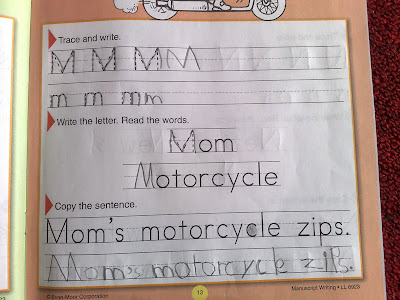 Trace and write.
M M M M
m m m m
Write the letter. Read the words.
Mom
Motorcycle
Copy the sentence.
Mom's motorcycle zips.
Mom's motorcycle zips.
© Evan-Moor Corporation 13 Manuscript Writing • LL 6923